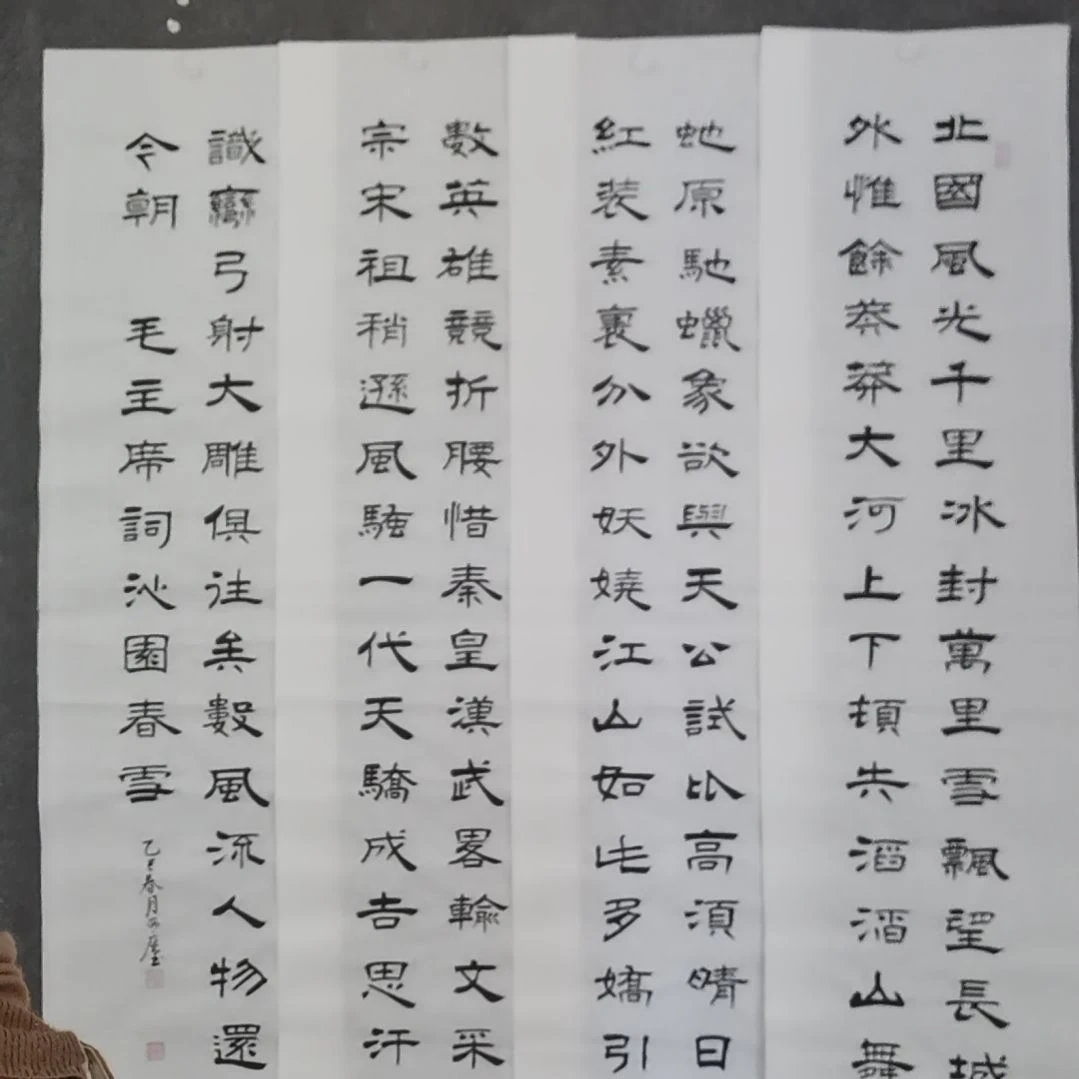 北國風光千里冰封萬里雪飄望長城
外惟餘莽莽大河上下頓失滔滔山舞
虵原馳蠟象欲與天公試比高須晴日
紅裝素裹分外妖嬈江山如此多嬌引
數英雄競折腰惜秦皇漢武畧輸文采
宗宋祖稍遜風騷一代天驕成吉思汗
識彎弓射大雕俱往矣數風流人物還
今朝 毛主席詞沁園春雪
乙巳春月